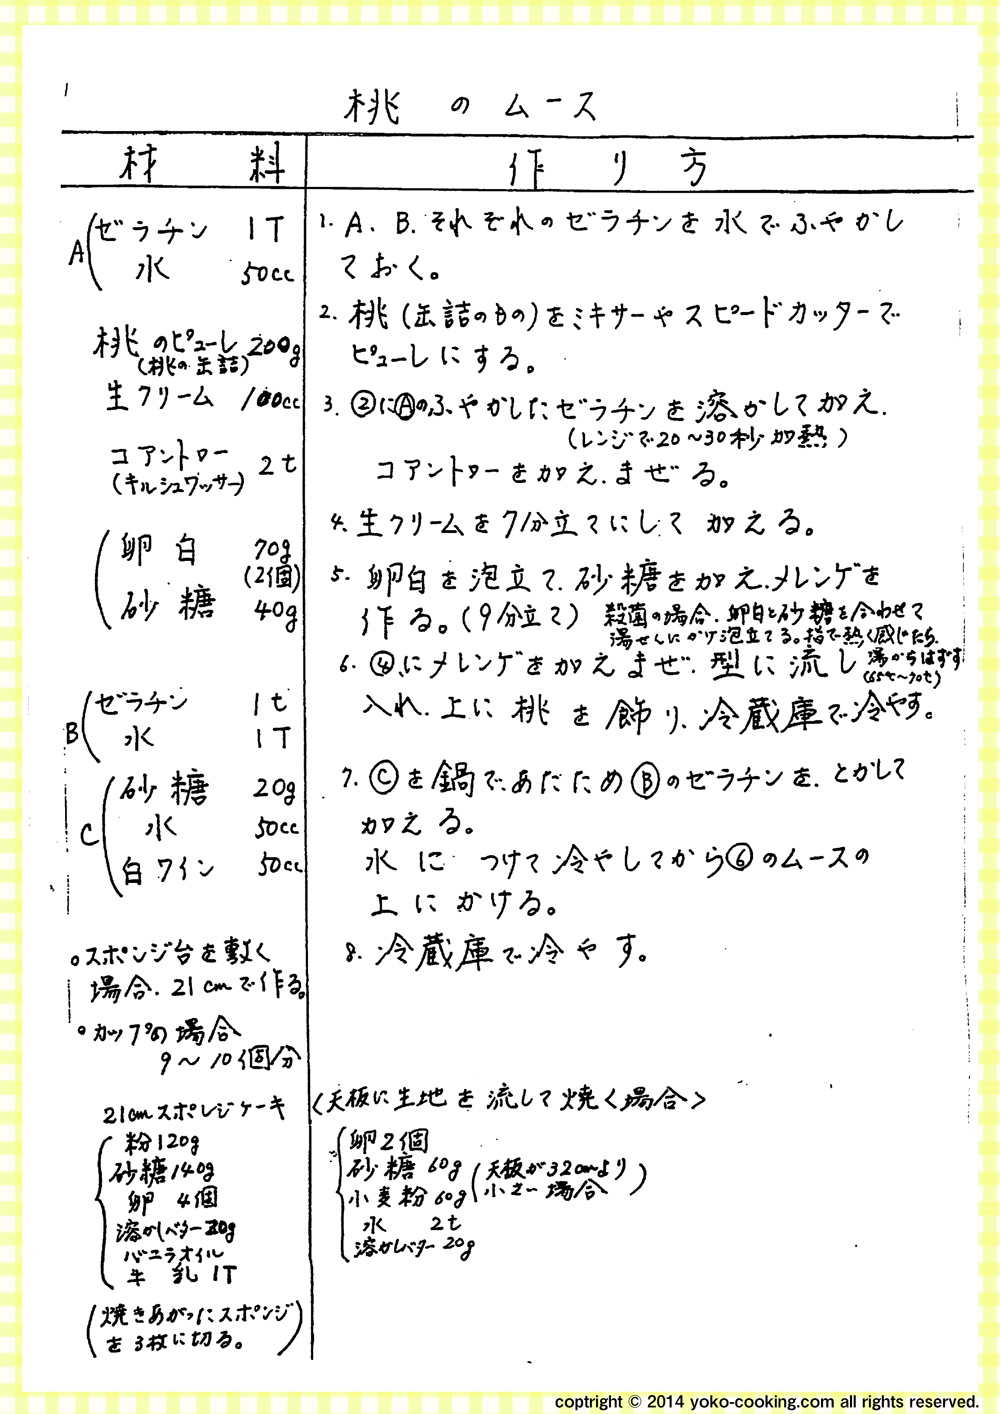 桃のムース
材料
作り方
A
ゼラチン 1T
水 50cc
桃のピューレ 200g
(桃の缶詰)
生クリーム 100cc
コアントロー 2t
(キルシュワッサー)
卵白 70g
(2個)
砂糖 40g
B
ゼラチン 1t
水 1T
C
砂糖 20g
水 50cc
白ワイン 50cc
○スポンジ台を敷く
場合、21cmで作る。
○カップの場合
9〜10個分
21cmスポンジケーキ
粉120g
砂糖140g
卵 4個
溶かしバター 20g
バニラオイル
牛乳 1T
(焼きあがったスポンジ
を3枚に切る。)
1. A. B. それぞれのゼラチンを水でふやかし
ておく。
2. 桃(缶詰のもの)をミキサーやスピードカッターで
ピューレにする。
3. ②にⒶのふやかしたゼラチンを溶かして加え.
(レンジで20〜30秒加熱)
コアントローを加え、まぜる。
4. 生クリームを7分立てにして加える。
5. 卵白を泡立て、砂糖を加え、メレンゲを
作る。(9分立て)
殺菌の場合、卵白と砂糖を合わせて
湯せんにかけ泡立てる。指で熱く感じたら、
湯からはずす
(65℃〜70℃)
6. ④にメレンゲを加えまぜ、型に流し
入れ、上に桃を飾り、冷蔵庫で冷やす。
7. Ⓒを鍋であたためⒷのゼラチンを、とかして
加える。
水につけて冷やしてから⑥のムースの
上にかける。
8. 冷蔵庫で冷やす。
<天板に生地を流して焼く場合>
卵2個
砂糖 60g
小麦粉 60g
水 2t
溶かしバター 20g
(天板が32cmより
小さい場合)
copyright © 2014 yoko-cooking.com all rights reserved.